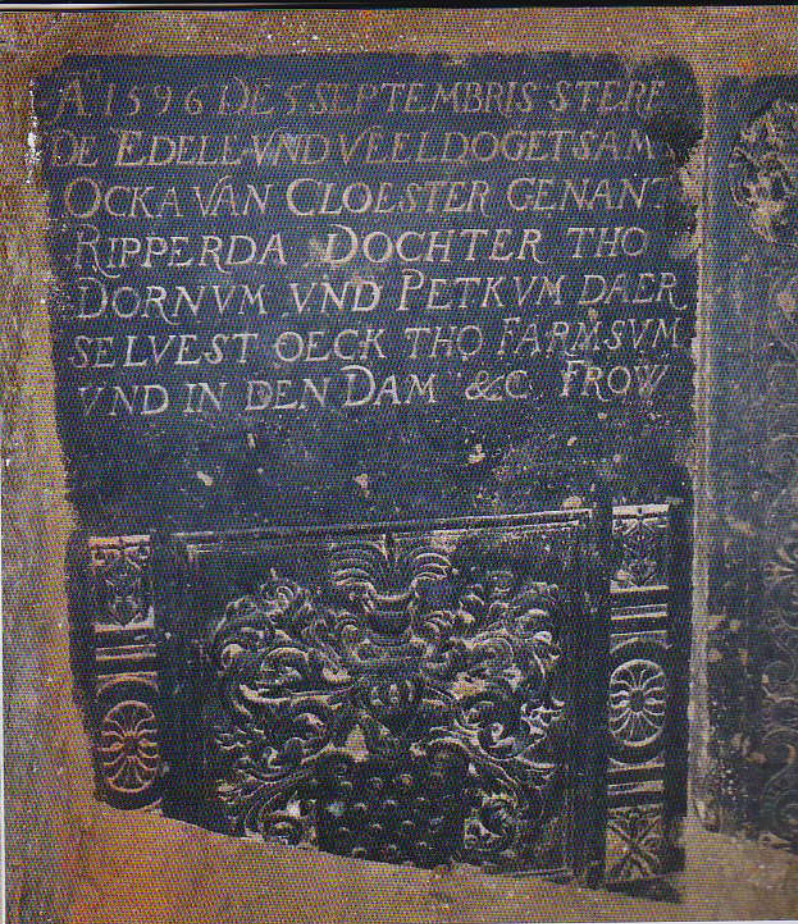 Aº 1596 DE 5 SEPTEMBRIS STERF
DE EDELE VND VEELDOGETSAM
OCKA VAN CLOESTER GENANT
RIPPERDA DOCHTER THO
DORNVM VND PETKVM DAER
SELVEST OECK THO FARMSVM
VND IN DEN DAM &C FROW